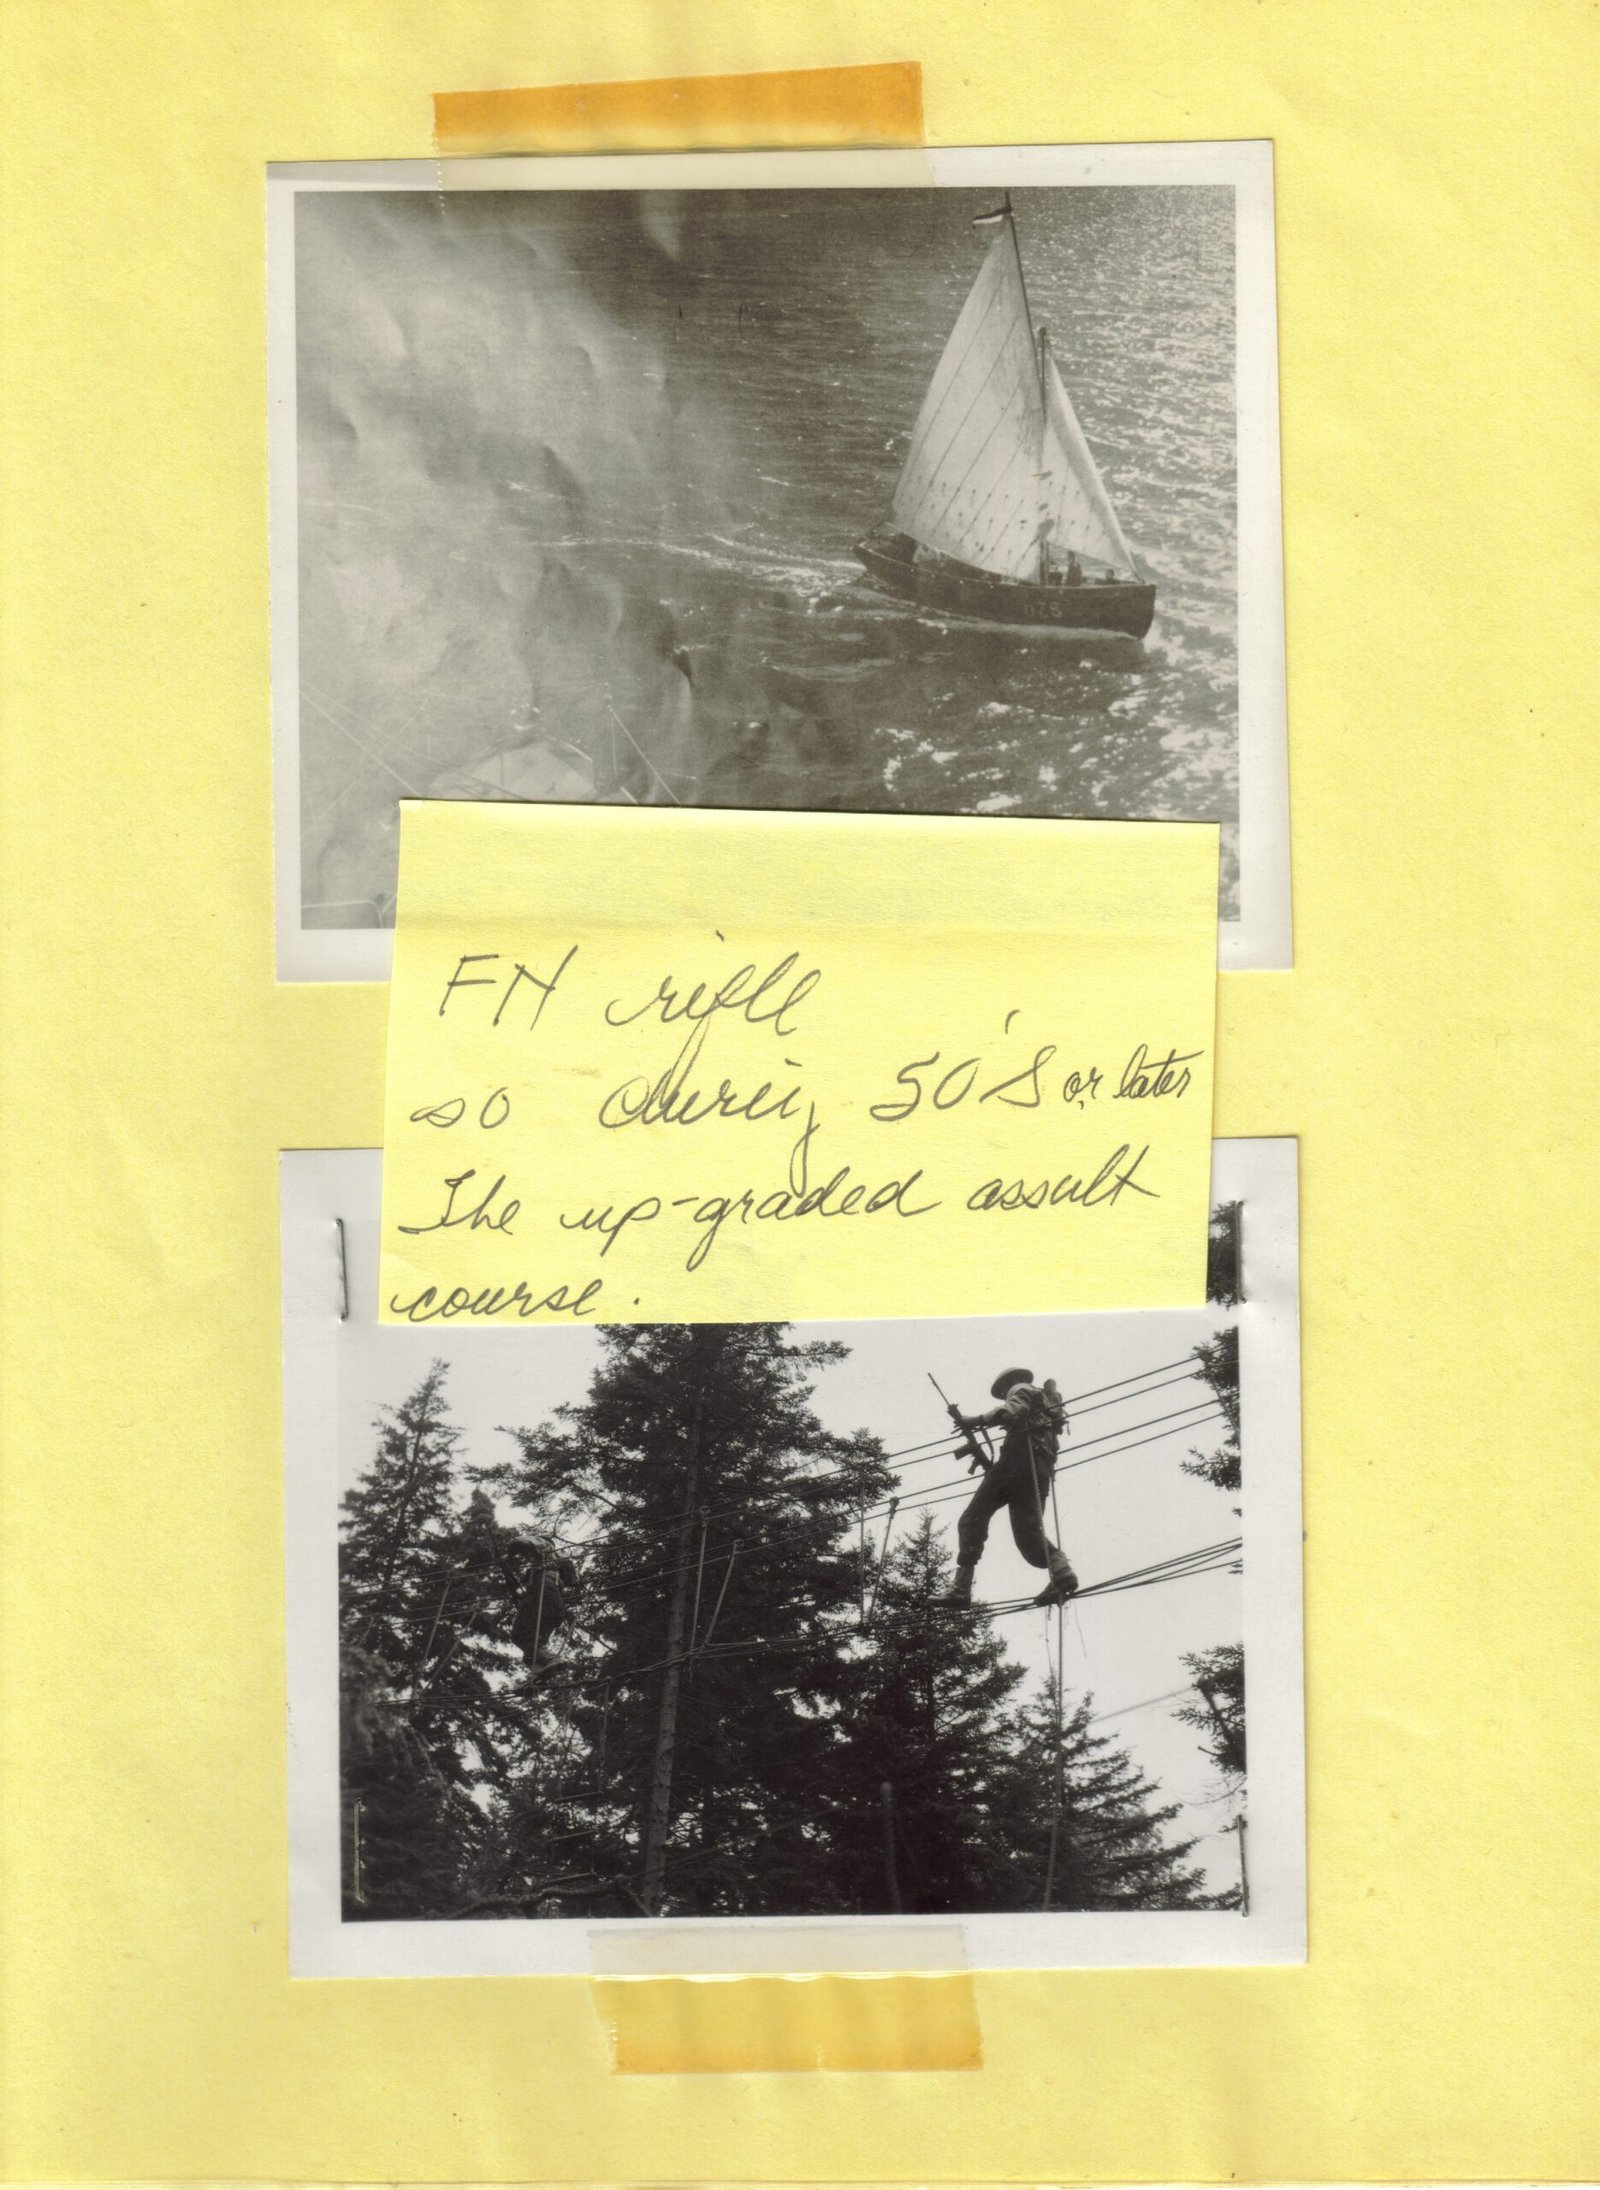 FN rifle
so during 50's or later
The up-graded assult
course.